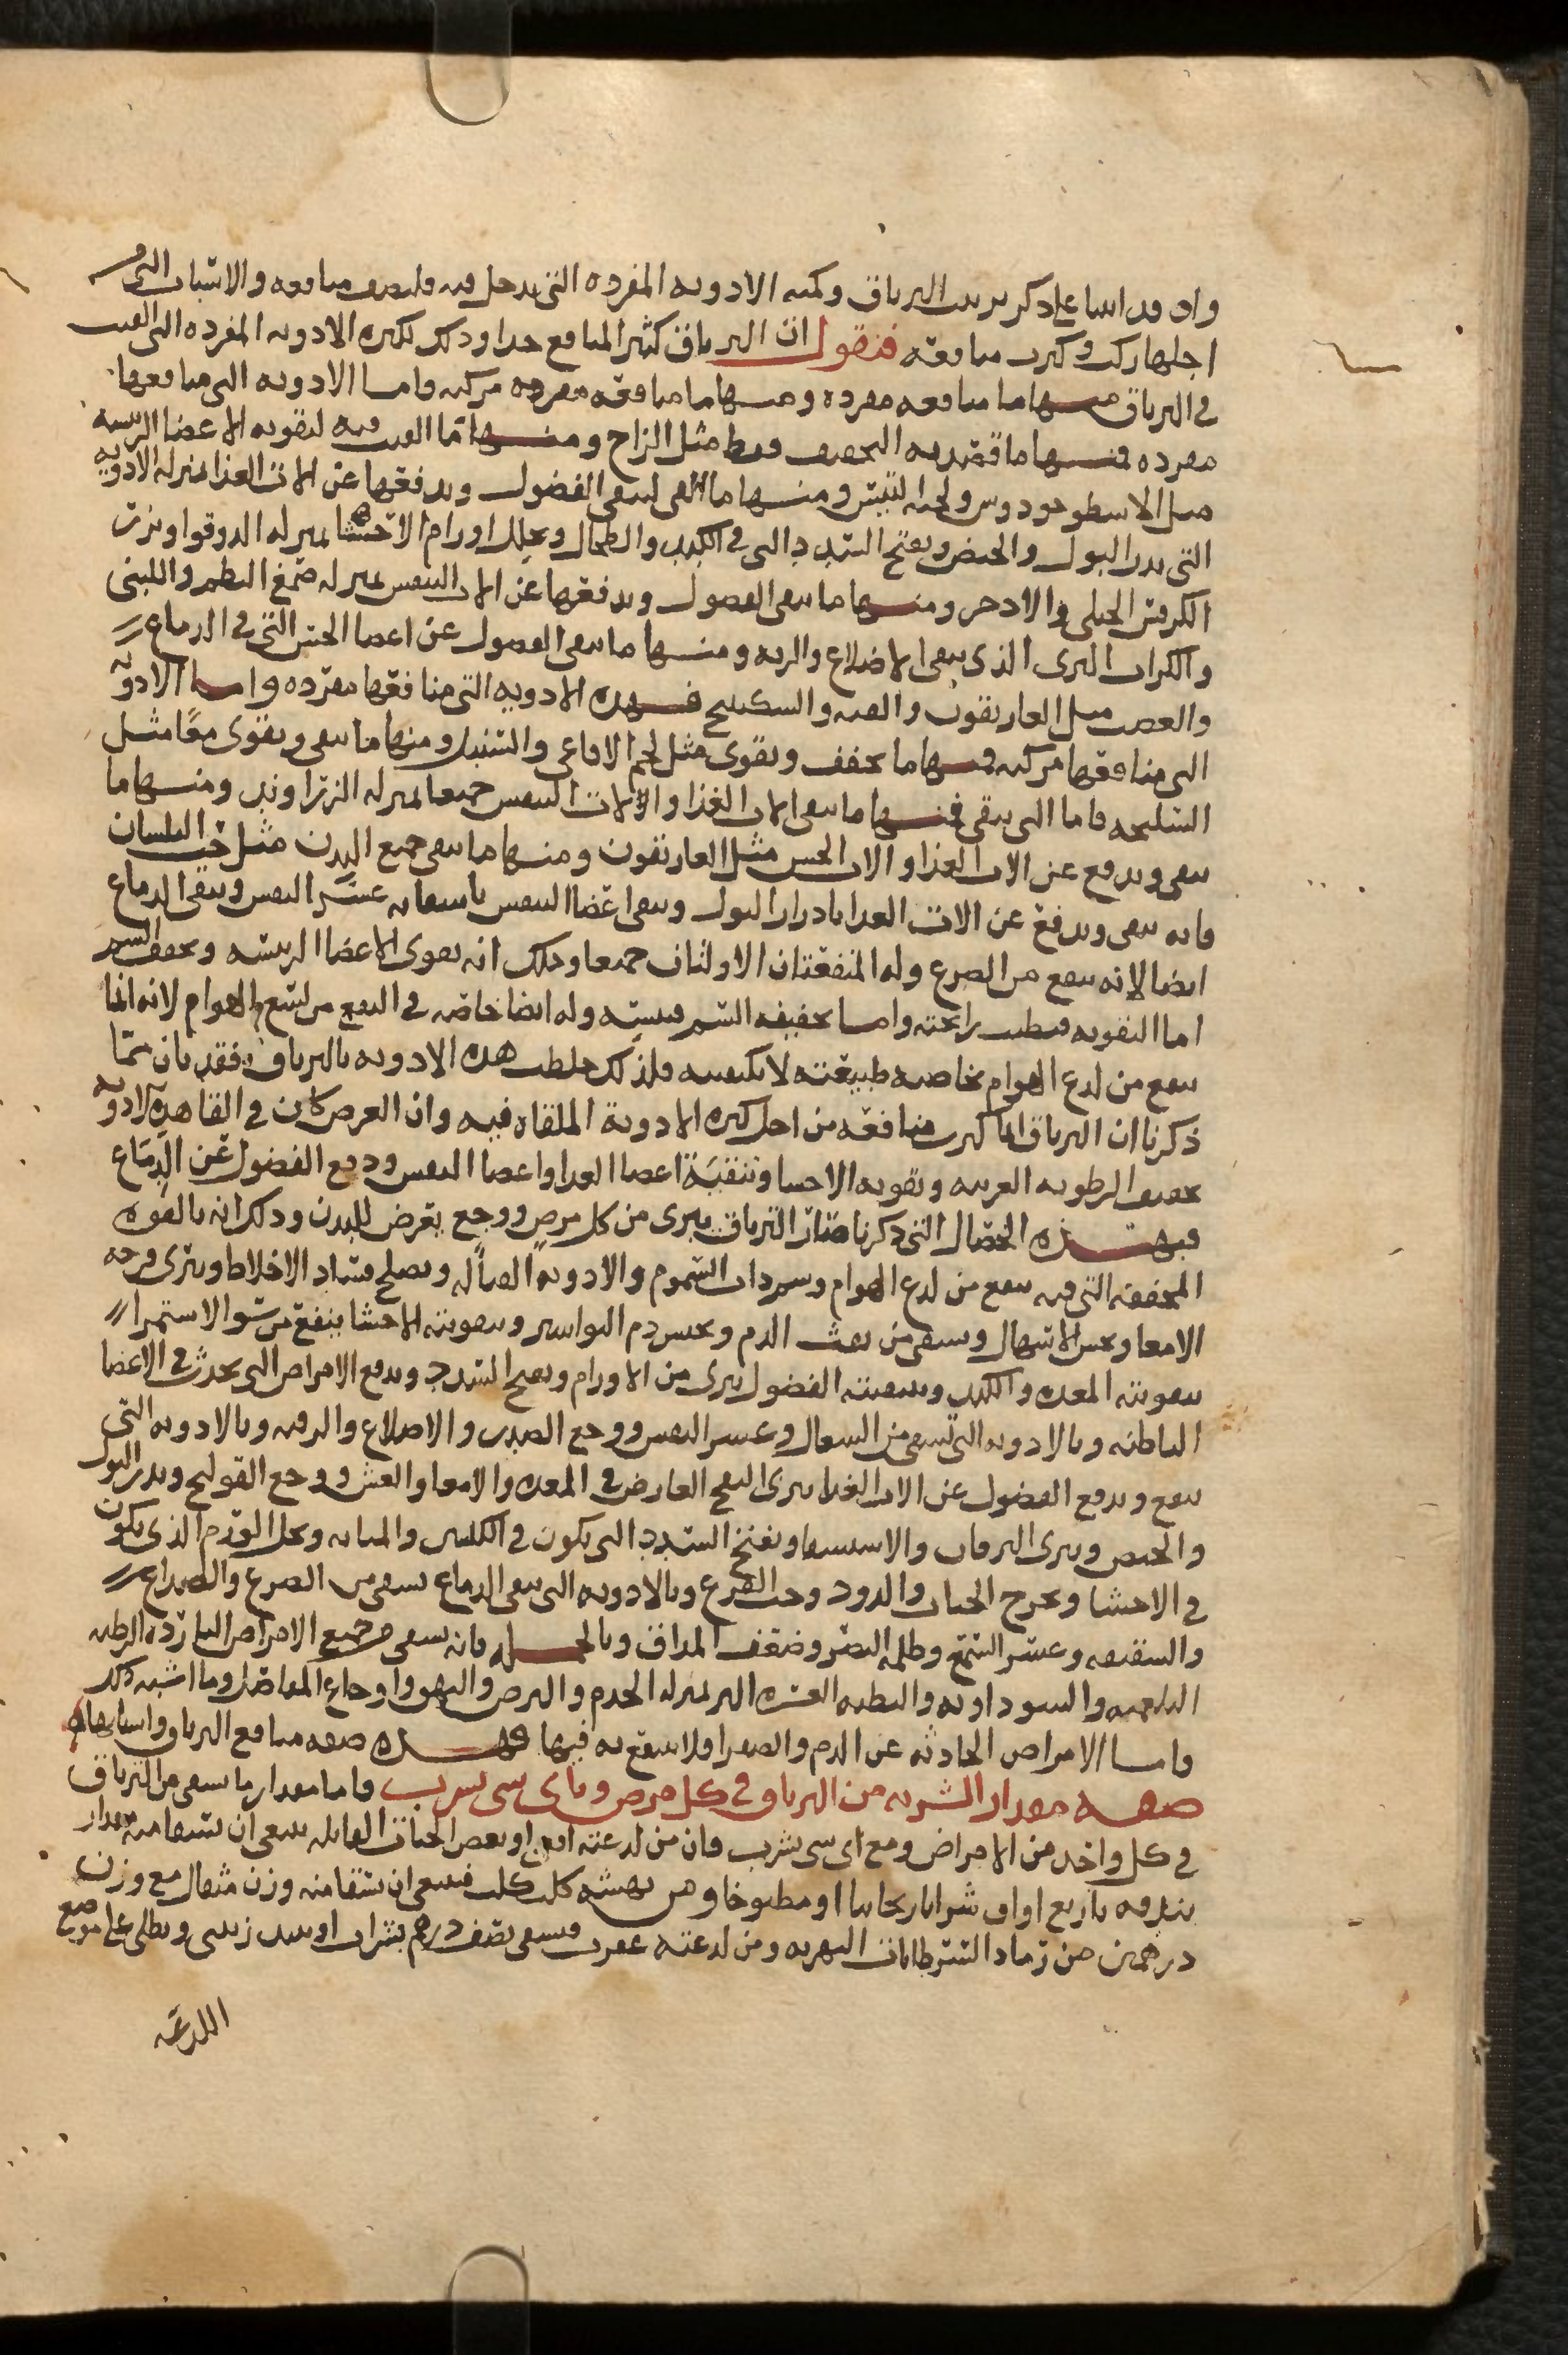 واذ قد اتينا على ذكر تركيب الترياق وكمية الادوية المفردة التي تدخل فيه فلنصف منافعه والاسباب التي من
اجلها ركب وكثرت منافعه فنقول ان الترياق كثير المنافع جدا وذلك لكثرة الادوية المفردة التي القيت
في الترياق منها ما منافعه مفردة ومنها ما منافعه مركبة واما الادوية التي منافعها
مفردة فمنها ما قصد به التجفيف فقط مثل الزاج ومنها ما القيت فيه لتقوية الاعضا الرئيسة
مثل الاسطوخودوس ولحية التيس ومنها ما القي لينقي الفضول ويدفعها عن الات الغذا بمنزلة الادوية
التي تدر البول والحيض ويفتح السدد التي في الكبد والطحال ويحلل اورام الاحشا بمنزلة الدوقوا وبزر
الكرفس الجبلي والاذخر ومنها ما ينقي الفضول ويدفعها عن الات التنفس بمنزلة صمغ البطم واللبنى
والكراث البري الذي ينقي الاضلاع والرية ومنها ما ينقي الفضول عن اعضا الحس التي في الدماع
والعصب مثل الغاريقون والقنه والسكبينج فهذه الادوية التي منافعها مفرده واما الادوية
التي منافعها مركبه فمنها ما يجفف ويقوي مثل لحم الافاعي والسنبل ومنها ما ينقي ويقوي معًا مثل
السليخه فاما التي تنقي فمنها ما ينقي الات الغذا والات التنفس جميعا بمنزلة الزراوند ومنها ما
ينقي ويدفع عن الات الغذا والات الحس مثل الغاريقون ومنها ما ينقي جميع البدن مثل حب البلسان
فانه ينقي ويدفع عن الات الغذا بادرار البول وينقي اعضا التنفس باشفايه عسر النفس وينقي الدماع
ايضا لانه ينفع من الصرع وله المنفعتان الاولتان جميعا وذلك انه يقوي الاعضا الرئيسه ويجفف السم
اما التقويه فبطيب رائحته واما تجفيفه السم فبيبسه وله ايضا خاصه في النفع من لسع الهوام لانه انما
ينفع من لدع الهوام بخاصيه طبيعته لا بكيفيه فلذلك خلطت هذه الادويه بالترياق فقد بان مما
ذكرنا ان الترياق انما كثرت منافعه من اجل كثرة الادوية الملقاه فيه وان الغرض كان في القا هذه الادوية
تجفيف الرطوبه الغريبه وتقويه الاحشا وتنقيَة اعضا الغذا واعضا النفس ودفع الفضول عن الدِمَاع
فبهذه الخصال التي ذكرنا صار الترياق يبرى من كل مرض ووجع يعرض للبدن وذلك انه بالقوه
المجففه التي فيه ينفع من لدع الهوام وشرب ذات السموم والادويه القتاله ويصلح فساد الاخلاط ويبرى قرحه
الامعا ويحبس الاسهال ويشفي من نفث الدم ويحبس دم البواسير وبتقويته الاحشا ينفع من سو الاستمرا
بتقويته المعده والكبد وبتنقيته الفضول يبرى من الاورام ويفتح السدد ويدفع الامراض التي تحدث في الاعضا
الباطنه وبالادويه التي تشفي من السعال وعسر النفس ووجع الصدر والاضلاع والرقبه وبالادويه التي
تنفع ويدفع الفضول عن الات الغذا يبرى النفخ العارض في المعده والامعا والغش ووجع القولنج ويدر البول
والحيض ويبرى اليرقان والاستسقا ويفتح السدد التي تكون في الكليتين والمثانه ويحلل الورم الذي يكون
في الاحشا ويخرج الحيات والدود وحب القرع وبالادويه التي تنقي الدماع يشفي من الصرع والصداع
والشقيقه وعسر السمع وظلمة البصر وضعف المذاق وبالجمله فانه يشفي جميع الامراض الباردة الرطبه
البلغميه والسوداويه والبطيه العسره البر بمنزله الجدم والبرص والبهق واوجاع المفاصل وما اشبه ذلك
واما الامراض الحادثه عن الدم والصفرا فلا ينتفع به فيها فهذه صفه منافع الترياق واسبابها
صفه مقدار الشربه من الترياق في كل مرض وباي شي يشرب فاما مقدار ما يسقى من الترياق
في كل واحد من الامراض ومع اي شي يشرب فان من لدعته افعى او بعض الحيات القاتله ينبغي ان يسقا منه مقدار
بندقه باربع اواق شرابا ريحانيا او مطبوخا ومن نهشه كلب كلب فينبغي ان يسقا منه وزن مثقال مع وزن
درهمين من رماد السرطانات النهريه ومن لدعته عقرب فيسقى نصف درهم بشراب او نبيذ زبيبي ويطلى على موضع
اللدغه